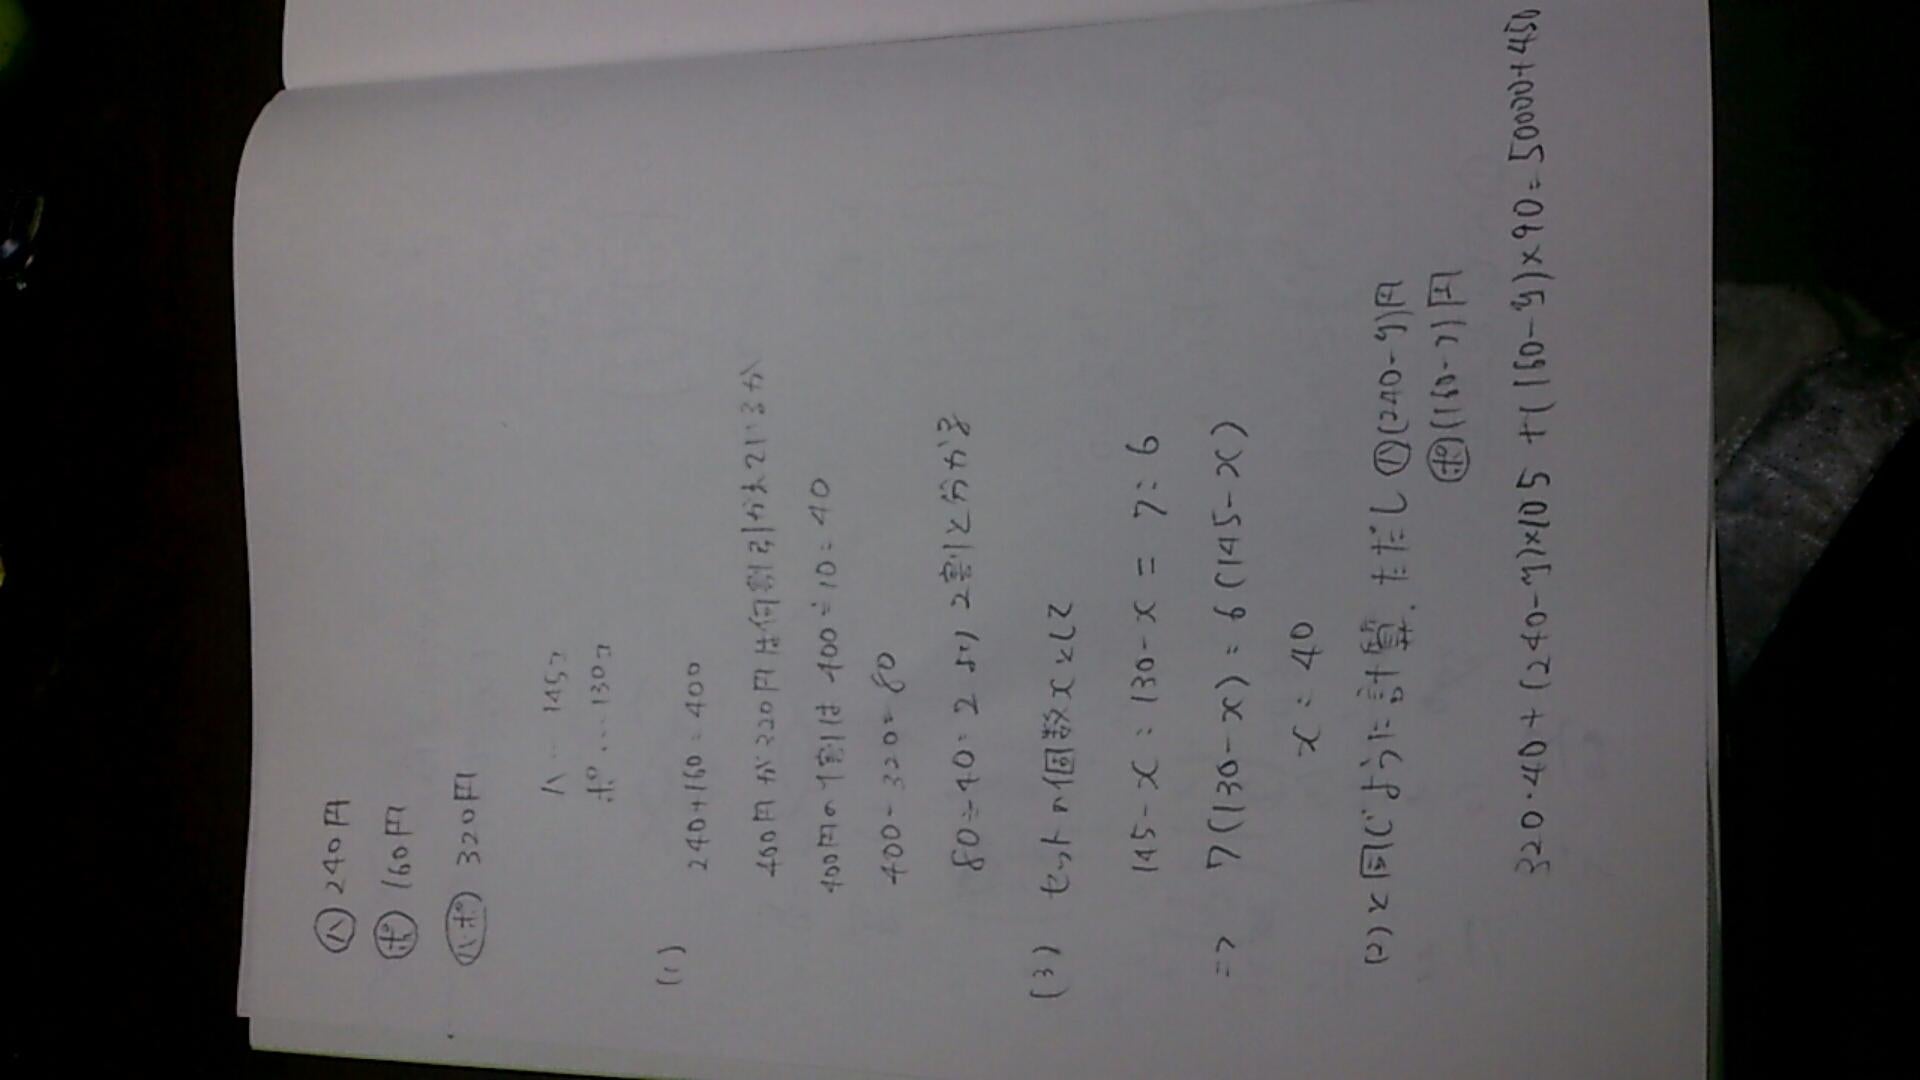 ハ 240円
ポ 160円
ハポ 320円
ハ… 145コ
ポ… 130コ
(1)
240+160=400
400円が320円は何割引かれているか
400円の1割は 400÷10=40
400-320=80
80÷40=2 より 2割と分かる
(3) セットの個数xとして
145-x:130-x=7:6
=> 7(130-x)=6(145-x)
x=40
(2)と同じように計算.ただし ハ(240-y)円
ポ(160-y)円
320・40+(240-y)×105+(160-y)×90=50000+450